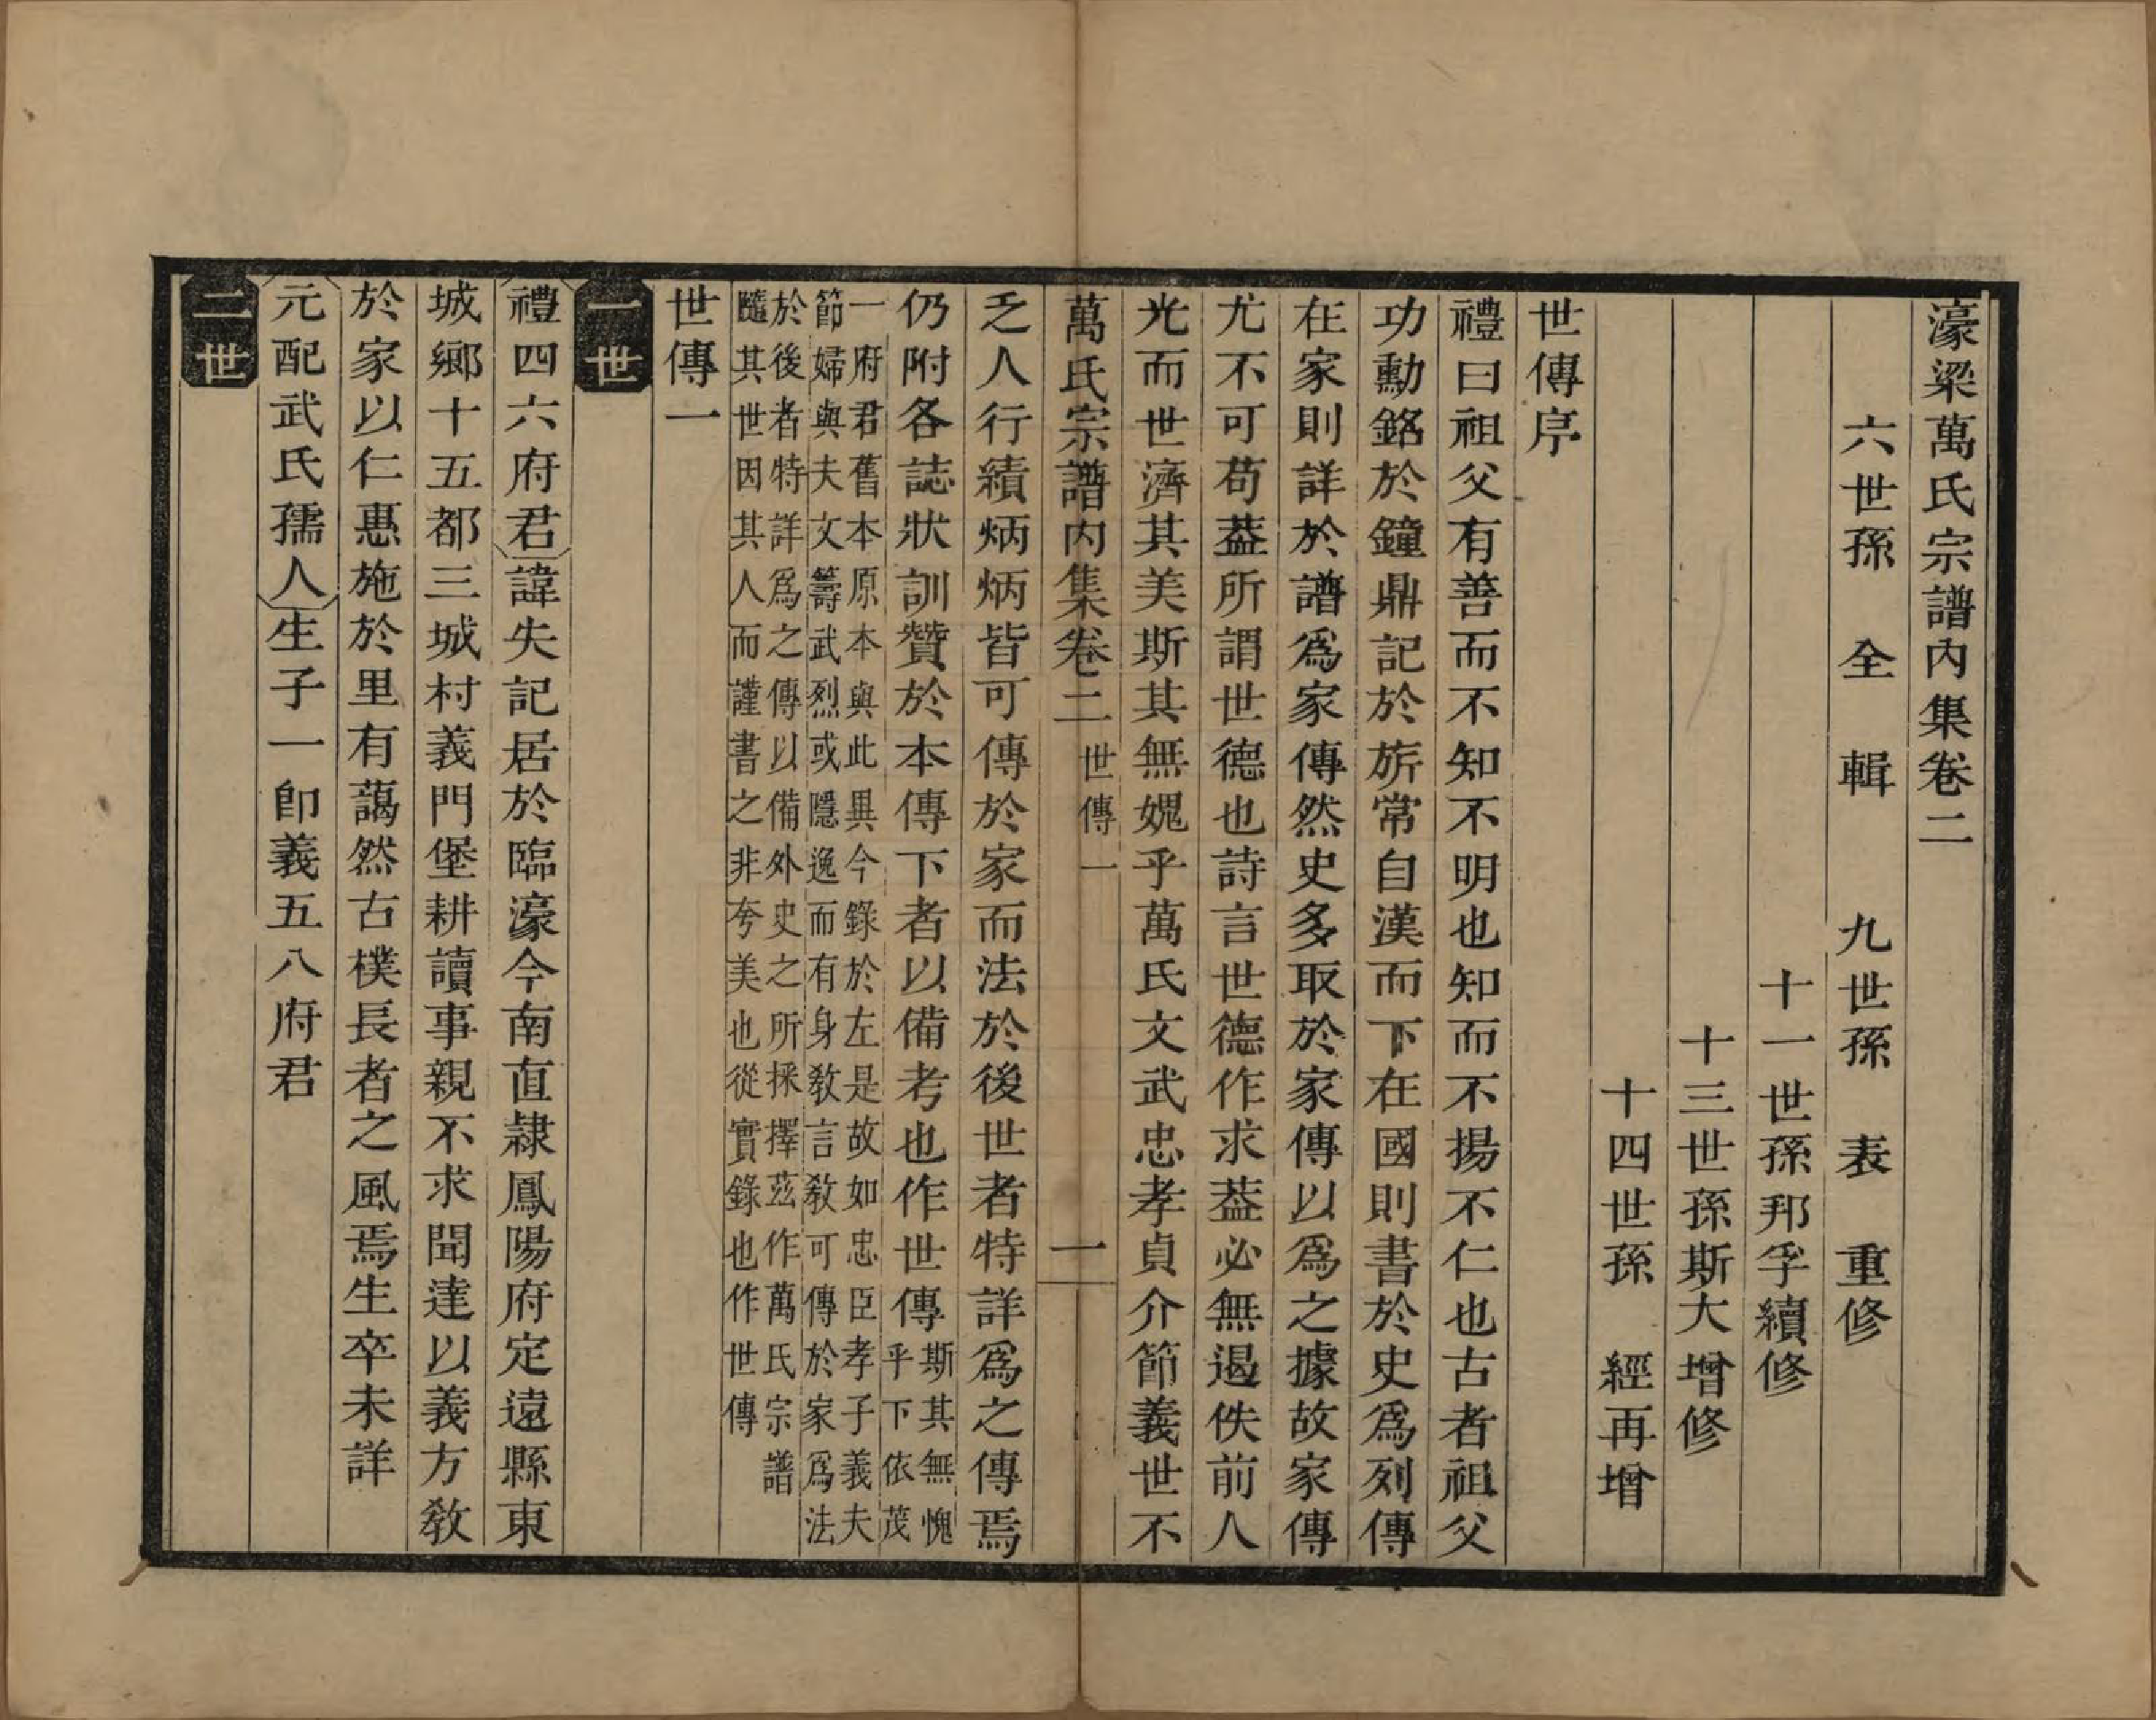 濠梁萬氏宗譜內集卷二
六世孫　全　輯　九世孫　表　重修
十一世孫邦孚續修
十三世孫斯大增修
十四世孫　經再增
世傳序
禮曰祖父有善而不知不明也知而不揚不仁也古者祖父
功勳銘於鐘鼎記於旂常自漢而下在國則書於史爲列傳
在家則詳於譜爲家傳然史多取於家傳以爲之據故家傳
尤不可苟葢所謂世德也詩言世德作求葢必無遏佚前人
光而世濟其美斯其無媿乎萬氏文武忠孝貞介節義世不
萬氏宗譜內集卷二　世傳一　一
乏人行績炳炳皆可傳於家而法於後世者特詳爲之傳焉
仍附各誌狀訓贊於本傳下者以備考也作世傳
斯其無愧
乎下依茂
一府君舊本原本與此異今錄於左是故如忠臣孝子義夫
節婦與夫文籌武烈或隱逸而有身敎言敎可傳於家爲法
於後者特詳爲之傳以備外史之所採擇茲作萬氏宗譜
隨其世因其人而謹書之非夸美也從實錄也作世傳
世傳一
一世
禮四六府君諱失記居於臨濠今南直隷鳳陽府定遠縣東
城鄉十五都三城村義門堡耕讀事親不求聞達以義方敎
於家以仁惠施於里有藹然古樸長者之風焉生卒未詳
元配武氏孺人生子一卽義五八府君
二世